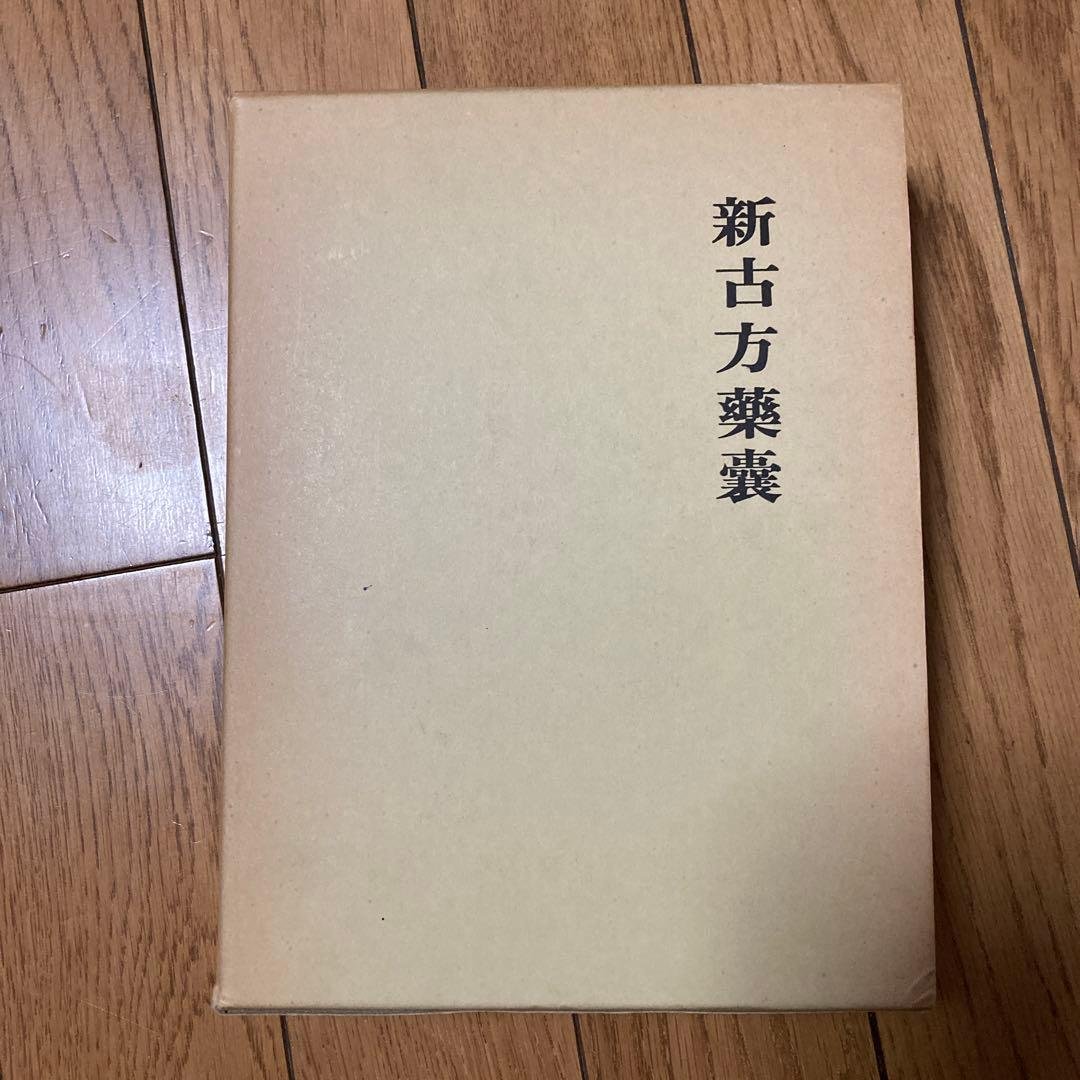 新古方藥囊